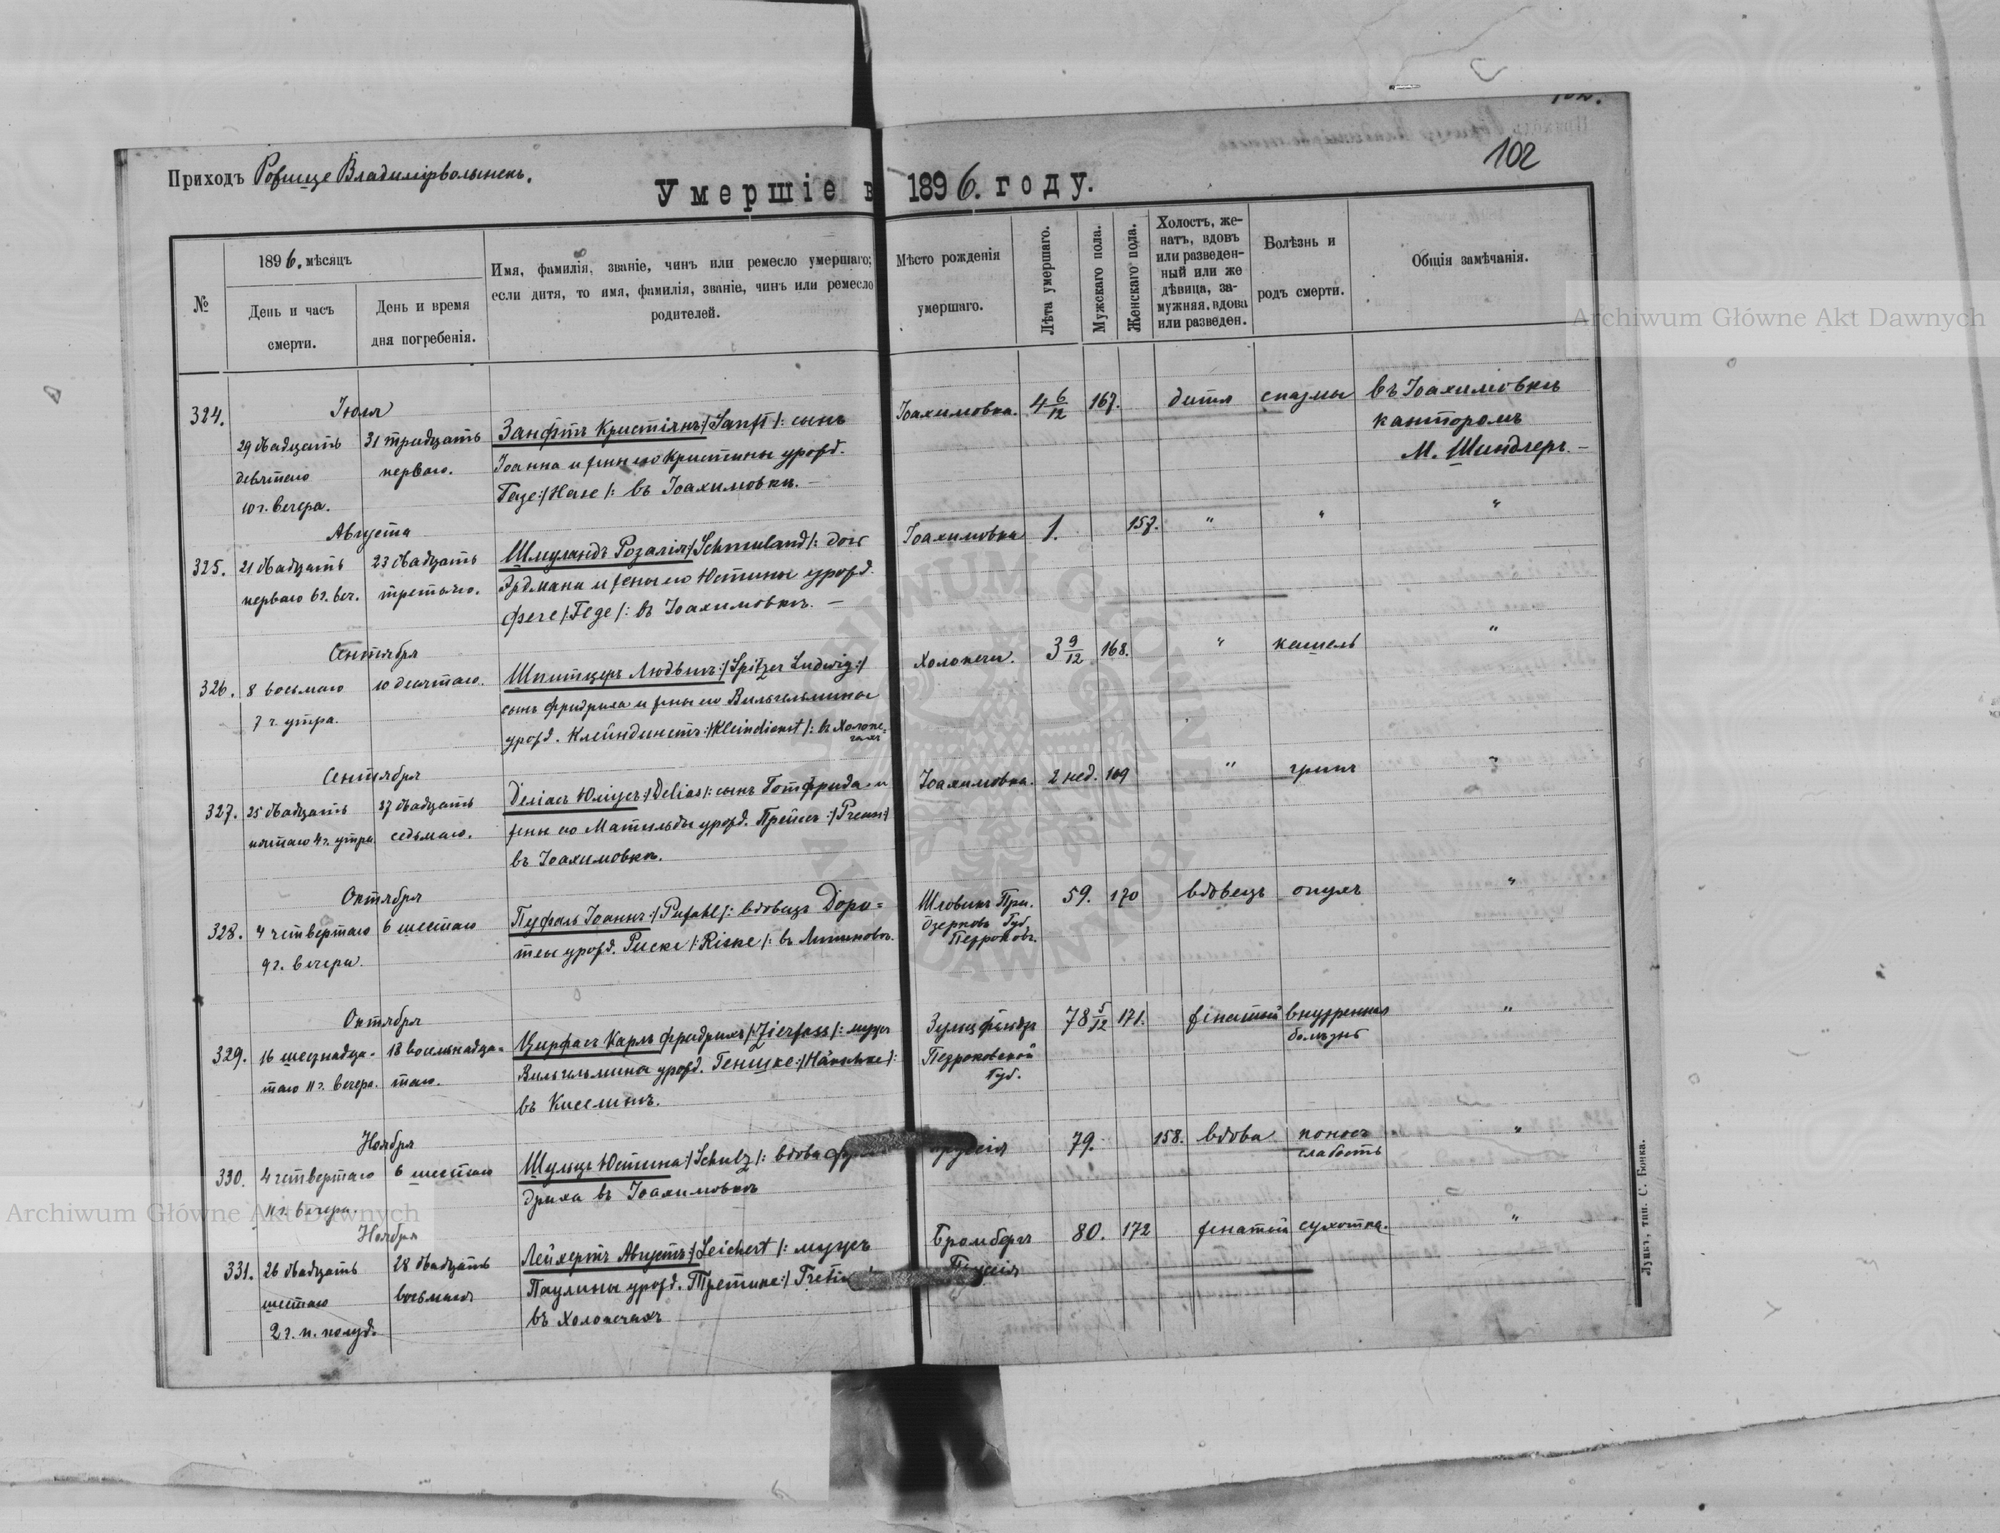 102
Приходъ Рожище Владимірволынскъ.
Умершіе в 1896. году.
№
1896. мѣсяцъ
День и часъ
смерти.
День и время
дня погребенія.
Имя, фамилія, званіе, чинъ или ремесло умершаго;
если дитя, то имя, фамилія, званіе, чинъ или ремесло
родителей.
Мѣсто рожденія
умершаго.
Лѣта умершаго.
Мужскаго пола.
Женскаго пола.
Холостъ, же-
натъ, вдовъ
или разведен-
ный или же
дѣвица, за-
мужняя, вдова
или разведен.
Болѣзнь и
родъ смерти.
Общія замѣчанія.
324.
Іюля
29 двадцать
девятаго
10 г. вечера.
31 тридцать
перваго.
Занфтъ Кристіянъ /Sanft/: сынъ
Іоанна и жены его Кристины урожд.
Газе :/Hase/: въ Іоахимовкѣ. —
Іоахимовка.
4 6/12
167.
дитя
спазмы
въ Іоахимовкѣ
канторомъ
М. Шиндлеръ. —
325.
Августа
21 двадцать
перваго 6 г. веч.
23 двадцать
третьяго.
Шмуландъ Розалія /Schmuland/: дочь
Эрдмана и жены его Юстины урожд.
Феге /:Fege/: въ Іоахимовкѣ. —
Іоахимовка
1.
157.
"
"
"
326.
Сентября
8 восьмаго
7 г. утра.
10 десятаго.
Шпитцеръ Людвигъ :/Spitzer Ludwig:/
сынъ Фридриха и жены его Вильгельмины
урожд. Клейндинстъ :/Kleindienst/: въ Холопе-
чахъ
Холопечи.
3 9/12
168.
"
кашель
"
327.
Сентября
25 двадцать
пятаго 4 г. утра
27 двадцать
седьмаго.
Деліасъ Юліусъ :/Delias/: сынъ Готфрида и
жены его Матильды урожд. Прейсъ :/Preuss:/
въ Іоахимовкѣ.
Іоахимовка.
2 нед.
169
"
грипъ
"
328.
Октября
4 четвертаго
9 г. вечера.
6 шестаго
Пуфаль Іоаннъ :/Pufahl/: вдовецъ Доро-
теы урожд. Риске /:Riske/: въ
59.
170
вдовецъ
опухъ
"
329.
Октября
16 шеснадца-
таго 11 г. вечера.
18 восьмнадца-
таго.
Цирфасъ Карлъ Фридрихъ /:Zierfass/: мужъ
Вильгельмины урожд. Генишке :/Hänschke/:
въ Киселинѣ.
Петроковской
Губ.
78 5/12
171.
женатый
внутренная
болѣзнь
"
330.
Ноября
4 четвертаго
11 г. вечера.
6 шестаго
Шульцъ Юстина :/Schulz/: вдова
дриха въ Іоахимовкѣ
79.
158.
вдова
поносъ
слабость
"
331.
Ноября
26 двадцать
шестаго
2 г. п. полуд.
28 двадцать
восьмаго
Лейхертъ Августъ :/Leichert/: мужъ
Паулины урожд.
въ Холопечахъ
Бромбергъ
Пруссія
80.
172
женатый
сухотка.
"
Луцкъ, тип. С. Бонка.
Archiwum Główne Akt Dawnych
Archiwum Główne Akt Dawnych
ARCHIWUM GŁÓWNE AKT DAWNYCH